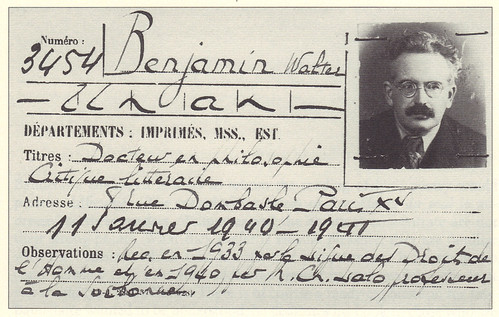 Numéro :
3454 Benjamin Walter
— Un an —
DÉPARTEMENTS : IMPRIMÉS, MSS., EST.
Titres : Docteur en philosophie
Critique litteraire
Adresse : rue Dombasle Paris XV
11 Janvier 1940 - 1941
Observations : Rec. en 1933 par la Ligue des Droits de
l'Homme et en 1940, par M. Ch. Lalo professeur
à la Sorbonne.